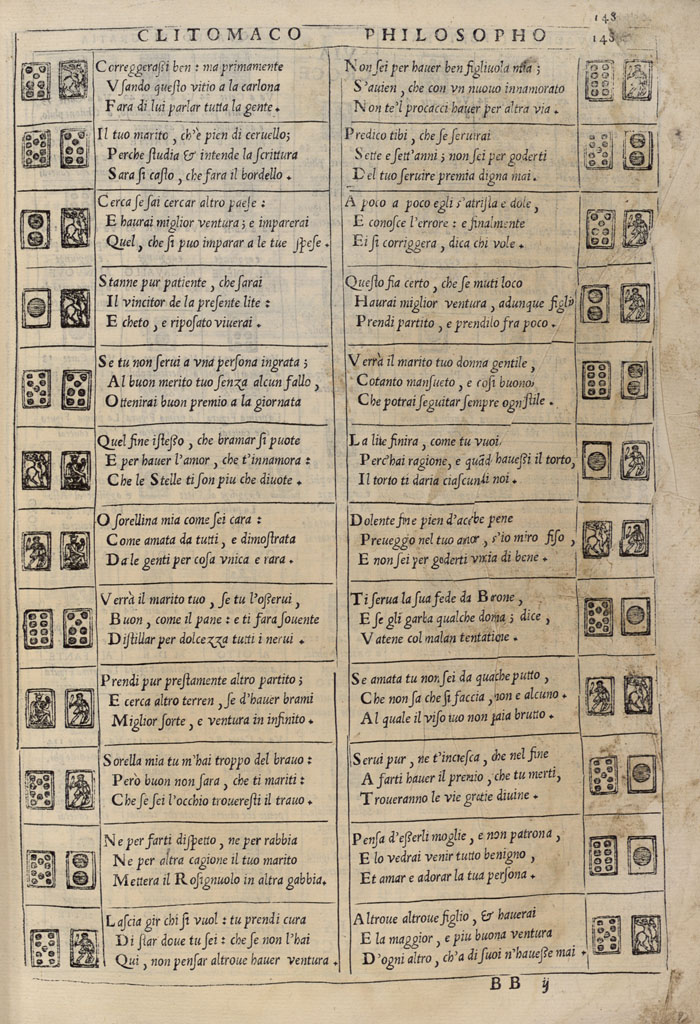 148
CLITOMACO PHILOSOPHO 148
Correggerassi ben : ma primamente
Vsando questo vitio a la carlona
Fara di lui parlar tutta la gente .
Il tuo marito , ch'è pien di ceruello;
Perche studia & intende la scrittura
Sara si casto , che fara il bordello .
Cerca se sai cercar altro paese :
E haurai miglior ventura ; e imparerai
Quel , che si puo imparar a le tue spese .
Stanne pur patiente , che sarai
Il vincitor de la presente lite :
E cheto , e riposato viuerai .
Se tu non serui a vna persona ingrata ;
Al buon merito tuo senza alcun fallo ,
Ottenirai buon premio a la giornata
Quel fine istesso , che bramar si puote
E per hauer l'amor , che t'innamora :
Che le Stelle ti son piu che diuote .
O sorellina mia come sei cara :
Come amata da tutti , e dimostrata
Da le genti per cosa vnica e rara .
Verrà il marito tuo , se tu l'osserui ,
Buon , come il pane : e ti fara souente
Distillar per dolcezza tutti i nerui .
Prendi pur prestamente altro partito ;
E cerca altro terren , se d'hauer brami
Miglior sorte , e ventura in infinito .
Sorella mia tu m'hai troppo del brauo :
Però buon non sara , che ti mariti :
Che se sei l'occhio troueresti il trauo .
Ne per farti dispetto , ne per rabbia
Ne per altra cagione il tuo marito
Mettera il Rosignuolo in altra gabbia.
Lascia gir chi si vuol : tu prendi cura
Di star doue tu sei : che se non l'hai
Qui , non pensar altroue hauer ventura .
Non sei per hauer ben figliuola mia ;
S'auien , che con vn nuouo innamorato
Non te'l procacci hauer per altra via .
Predico tibi , che se seruirai
Sette e sett'anni ; non sei per goderti
Del tuo seruire premia digna mai .
A poco a poco egli s'atrista e dole ,
E conosce l'errore : e finalmente
Ei si corriggera , dica chi vole .
Questo fia certo , che se muti loco
Haurai miglior ventura , adunque figli
Prendi partito , e prendilo fra poco .
Verrà il marito tuo donna gentile ,
Cotanto mansueto , e così buono
Che potrai seguitar sempre ogn stile .
La lite finira , come tu vuoi
Perc'hai ragione, e quãd hauessi il torto,
Il torto ti daria ciascun di noi .
Dolente fine pien d'acerbe pene
Preueggo nel tuo amor , s'io miro fiso ,
E non sei per goderti vnxia di bene .
Ti serua la sua fede da Brone ,
E se gli garba qualche dona ; dice ,
Vatene col malan tentatione .
Se amata tu non sei da qualche putto ,
Che non sa che si faccia , non e alcuno .
Al quale il viso tuo non paia brutto .
Serui pur , ne t'incresca , che nel fine
A farti hauer il premio , che tu merti,
Troueranno le vie gratie diuine .
Pensa d'esserli moglie , e non patrona ,
E lo vedrai venir tutto benigno ,
Et amar e adorar la tua persona .
Altroue altroue figlio , & hauerai
E la maggior , e piu buona ventura
D'ogni altro , ch'a di suoi n'hauesse mai .
BB ij